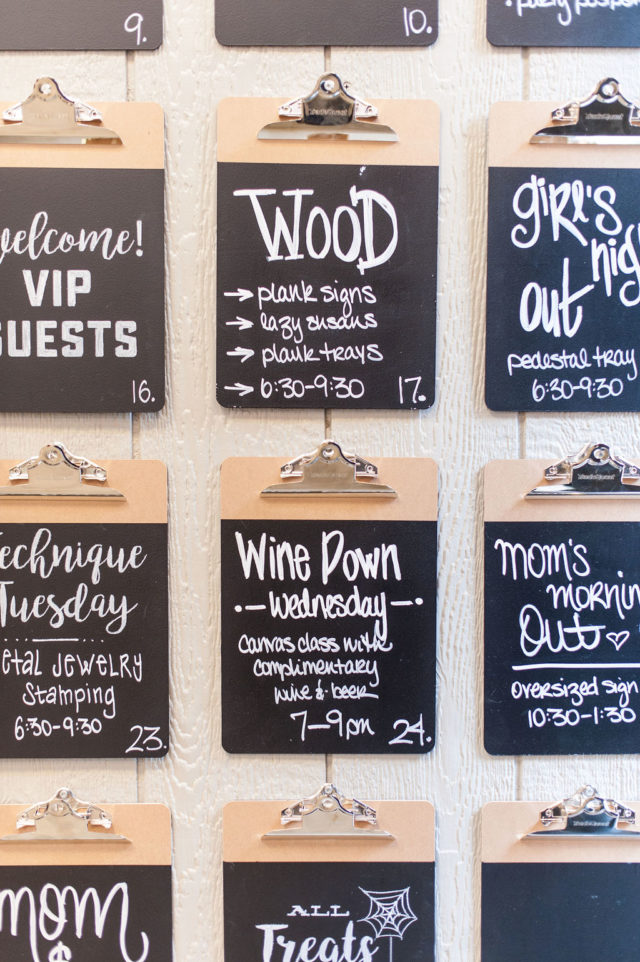 9.
10.
welcome!
VIP
GUESTS
16.
WOOD
→ plank signs
→ lazy susans
→ plank trays
→ 6:30-9:30
17.
girl's
nigh
out
pedestal tray
6:30-9:30
Technique
Tuesday
etal Jewelry
Stamping
6:30-9:30
23.
Wine Down
•—Wednesday—•
canvas class with
complimentary
wine & beer
7-9pm
24.
mom's
mornin
Out ♡
oversized sign
10:30-1:30
mom
&
ALL
Treats